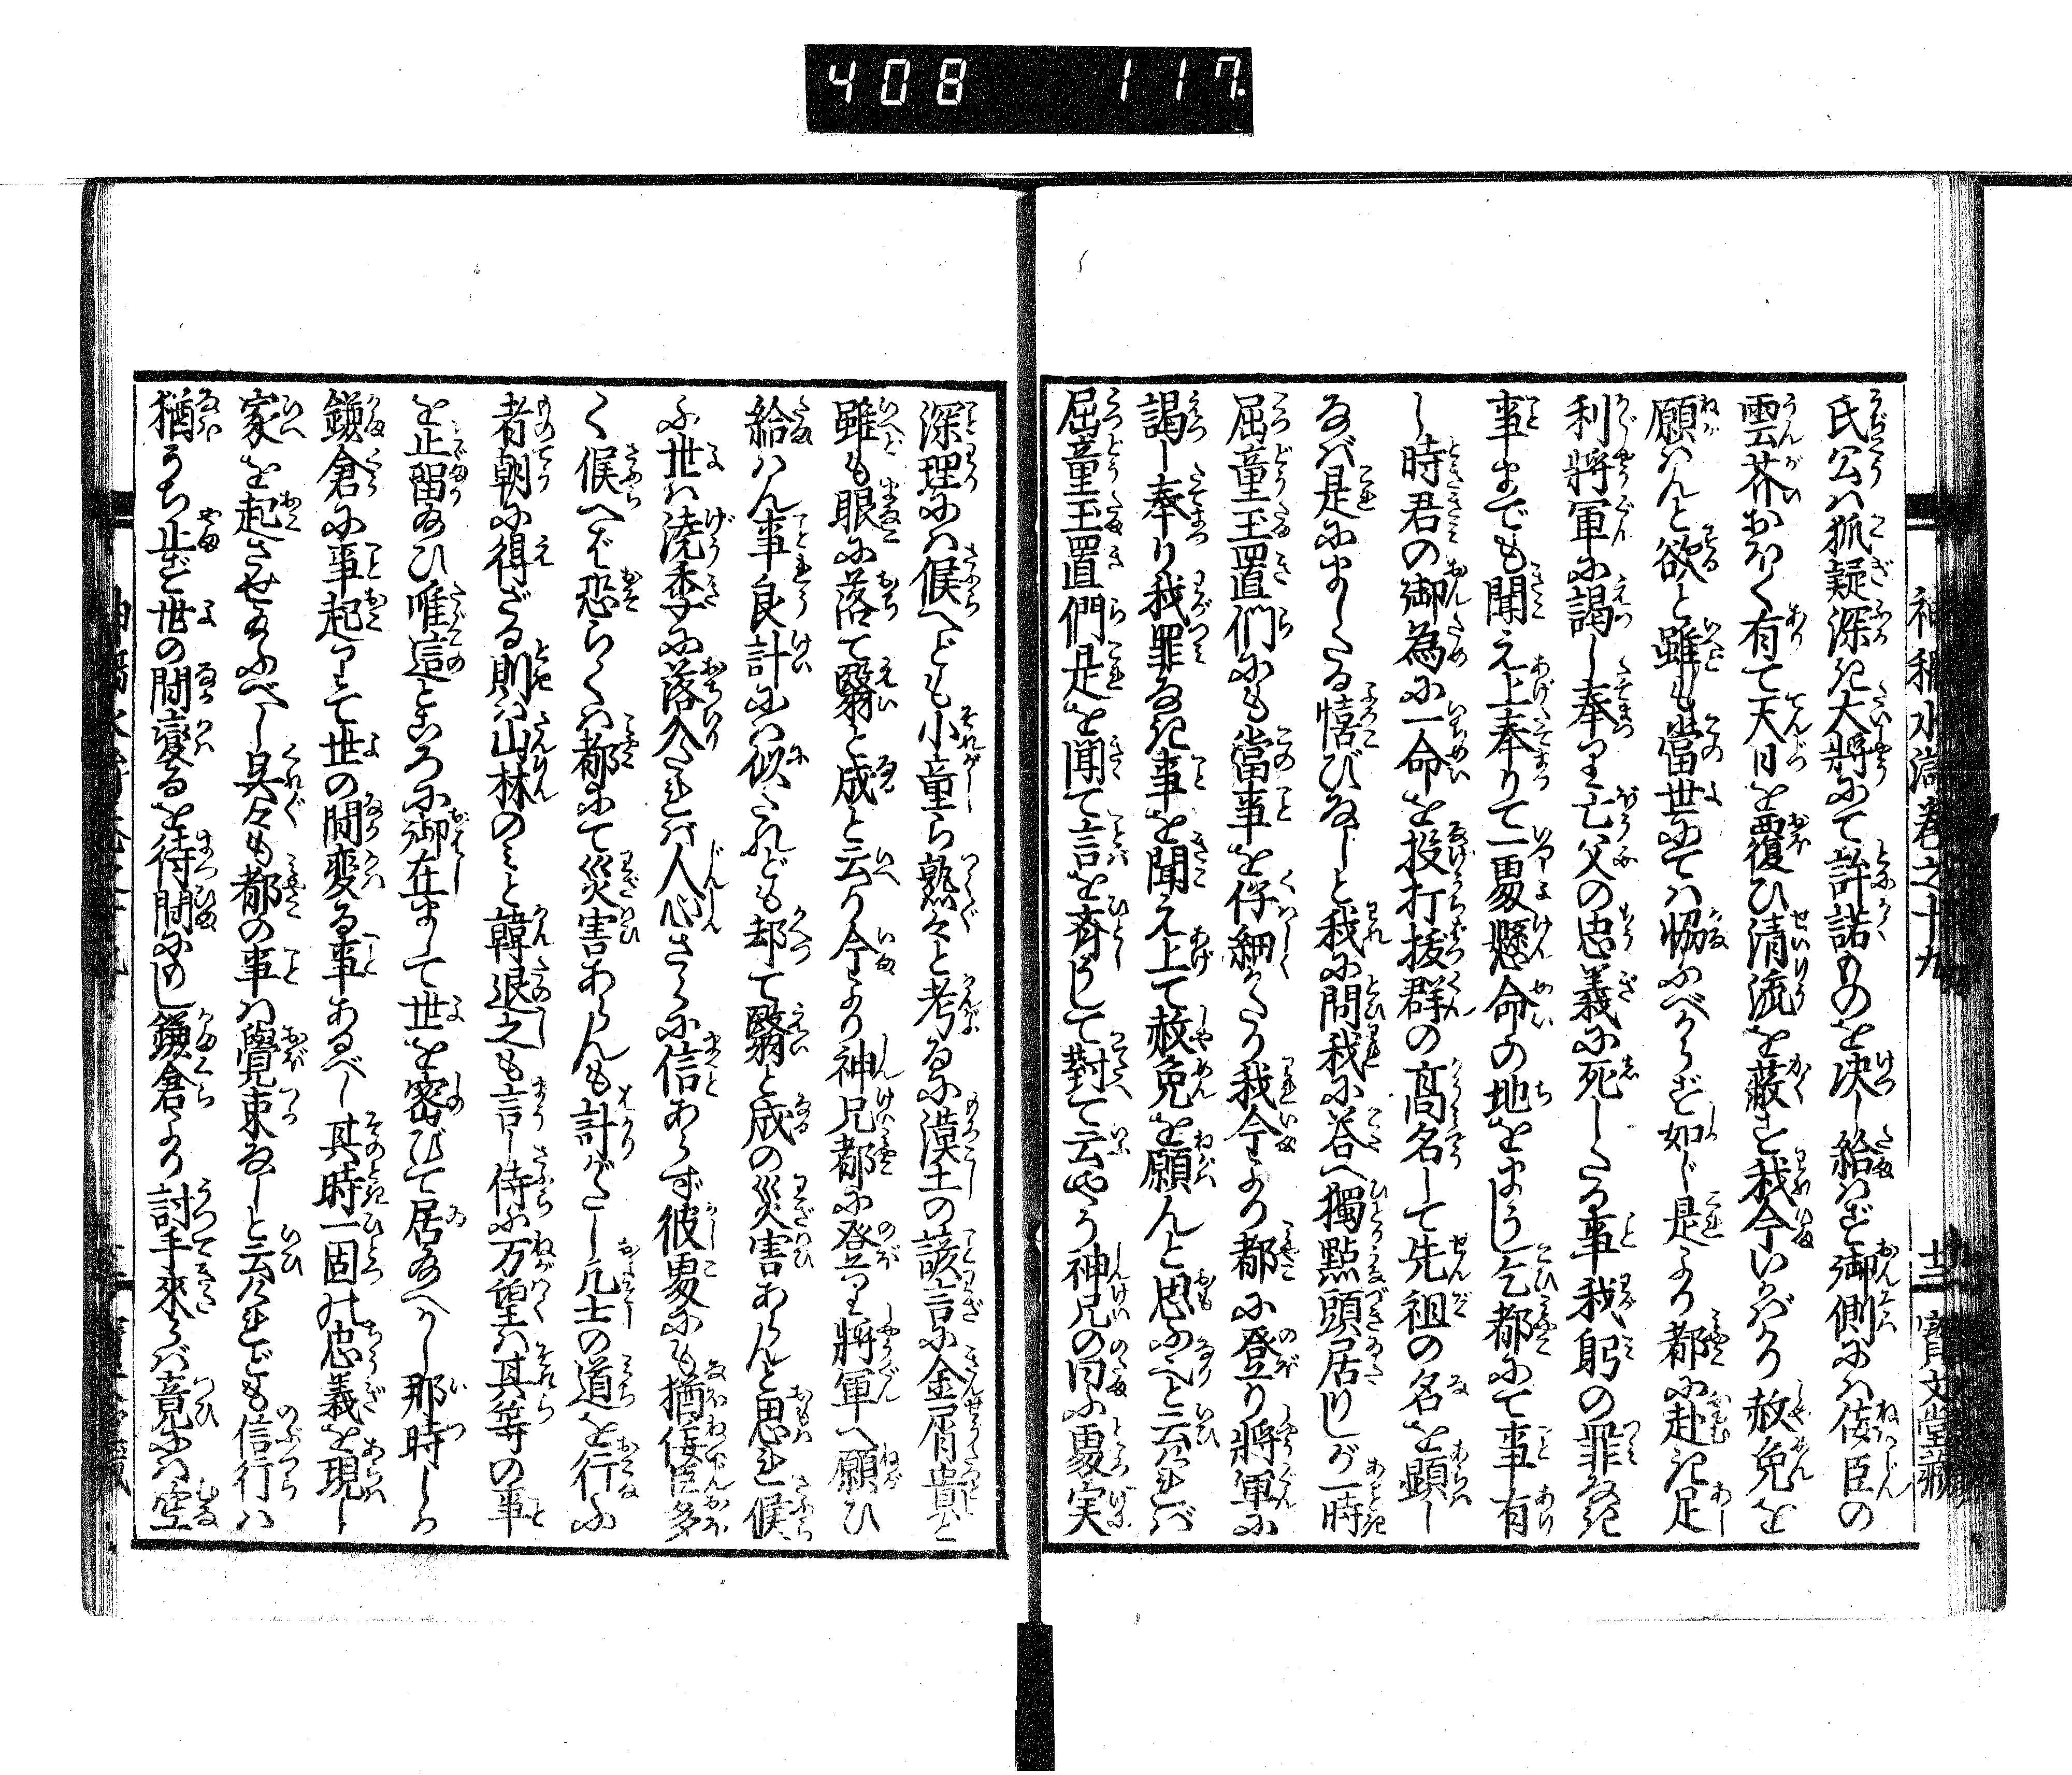 408 117.
神稲水滸巻之十九
十三 寶文堂藏
氏公ハ狐疑深き大将にて許諾ものを决し給はず御側にハ佞臣の
雲芥おほく有て天日を覆ひ清流を蔽す我今いかばかり赦免を
願ハんと欲と雖も當世にてハ恊ふべからず如じ是より都に赴き足
利將軍に謁し奉り亡父の忠義に死したる事我躬の罪なき
事までも聞え上奉りて一男懸命の地をまうし乞都にて事有
し時君の御為に一命を投打抜群の高名して先祖の名を顕し
なば是にましたる悟びなしと我に問我に答へ獨點頭居りしが一時
屈童玉置們にも當事を仔細かたり我今より都に登り將軍に
謁し奉り我罪なき事を聞え上て赦免を願んと思ふへと云けれバ
屈童玉置們是を聞て言を齊うして對て云やう神兄の曰ふ処実
深理にハ候へども小童ら熟々と考るに漠土の諺言に金屑貴と
雖も眼に落て翳と成と云り今より神兄都に登り將軍へ願ひ
給はん事良計にハ似たれども却て翳と成の災害あらんと思ハれ候
ふ世ハ澆季に落入たれバ人心さらに信あらず彼処にも猶佞臣多
く候へバ恐らくハ都にて災害あらんも計がたし凡士の道を行ふ
者朝に得ざる則ハ山林のミと韓退之も言し侍ふ万望ハ其等の事
を止留給ひ唯這ところに御在まして世を密びて居給へかし那時しか
鎌倉に事起りて世の間変る事あるべし其時一固の忠義を現し
家を起させ給ふべし具々も都の事ハ覺束なしと云けれども信行ハ
猶うち止ず世の間變るを待間にもし鎌倉より討手來らバ竟にハ空